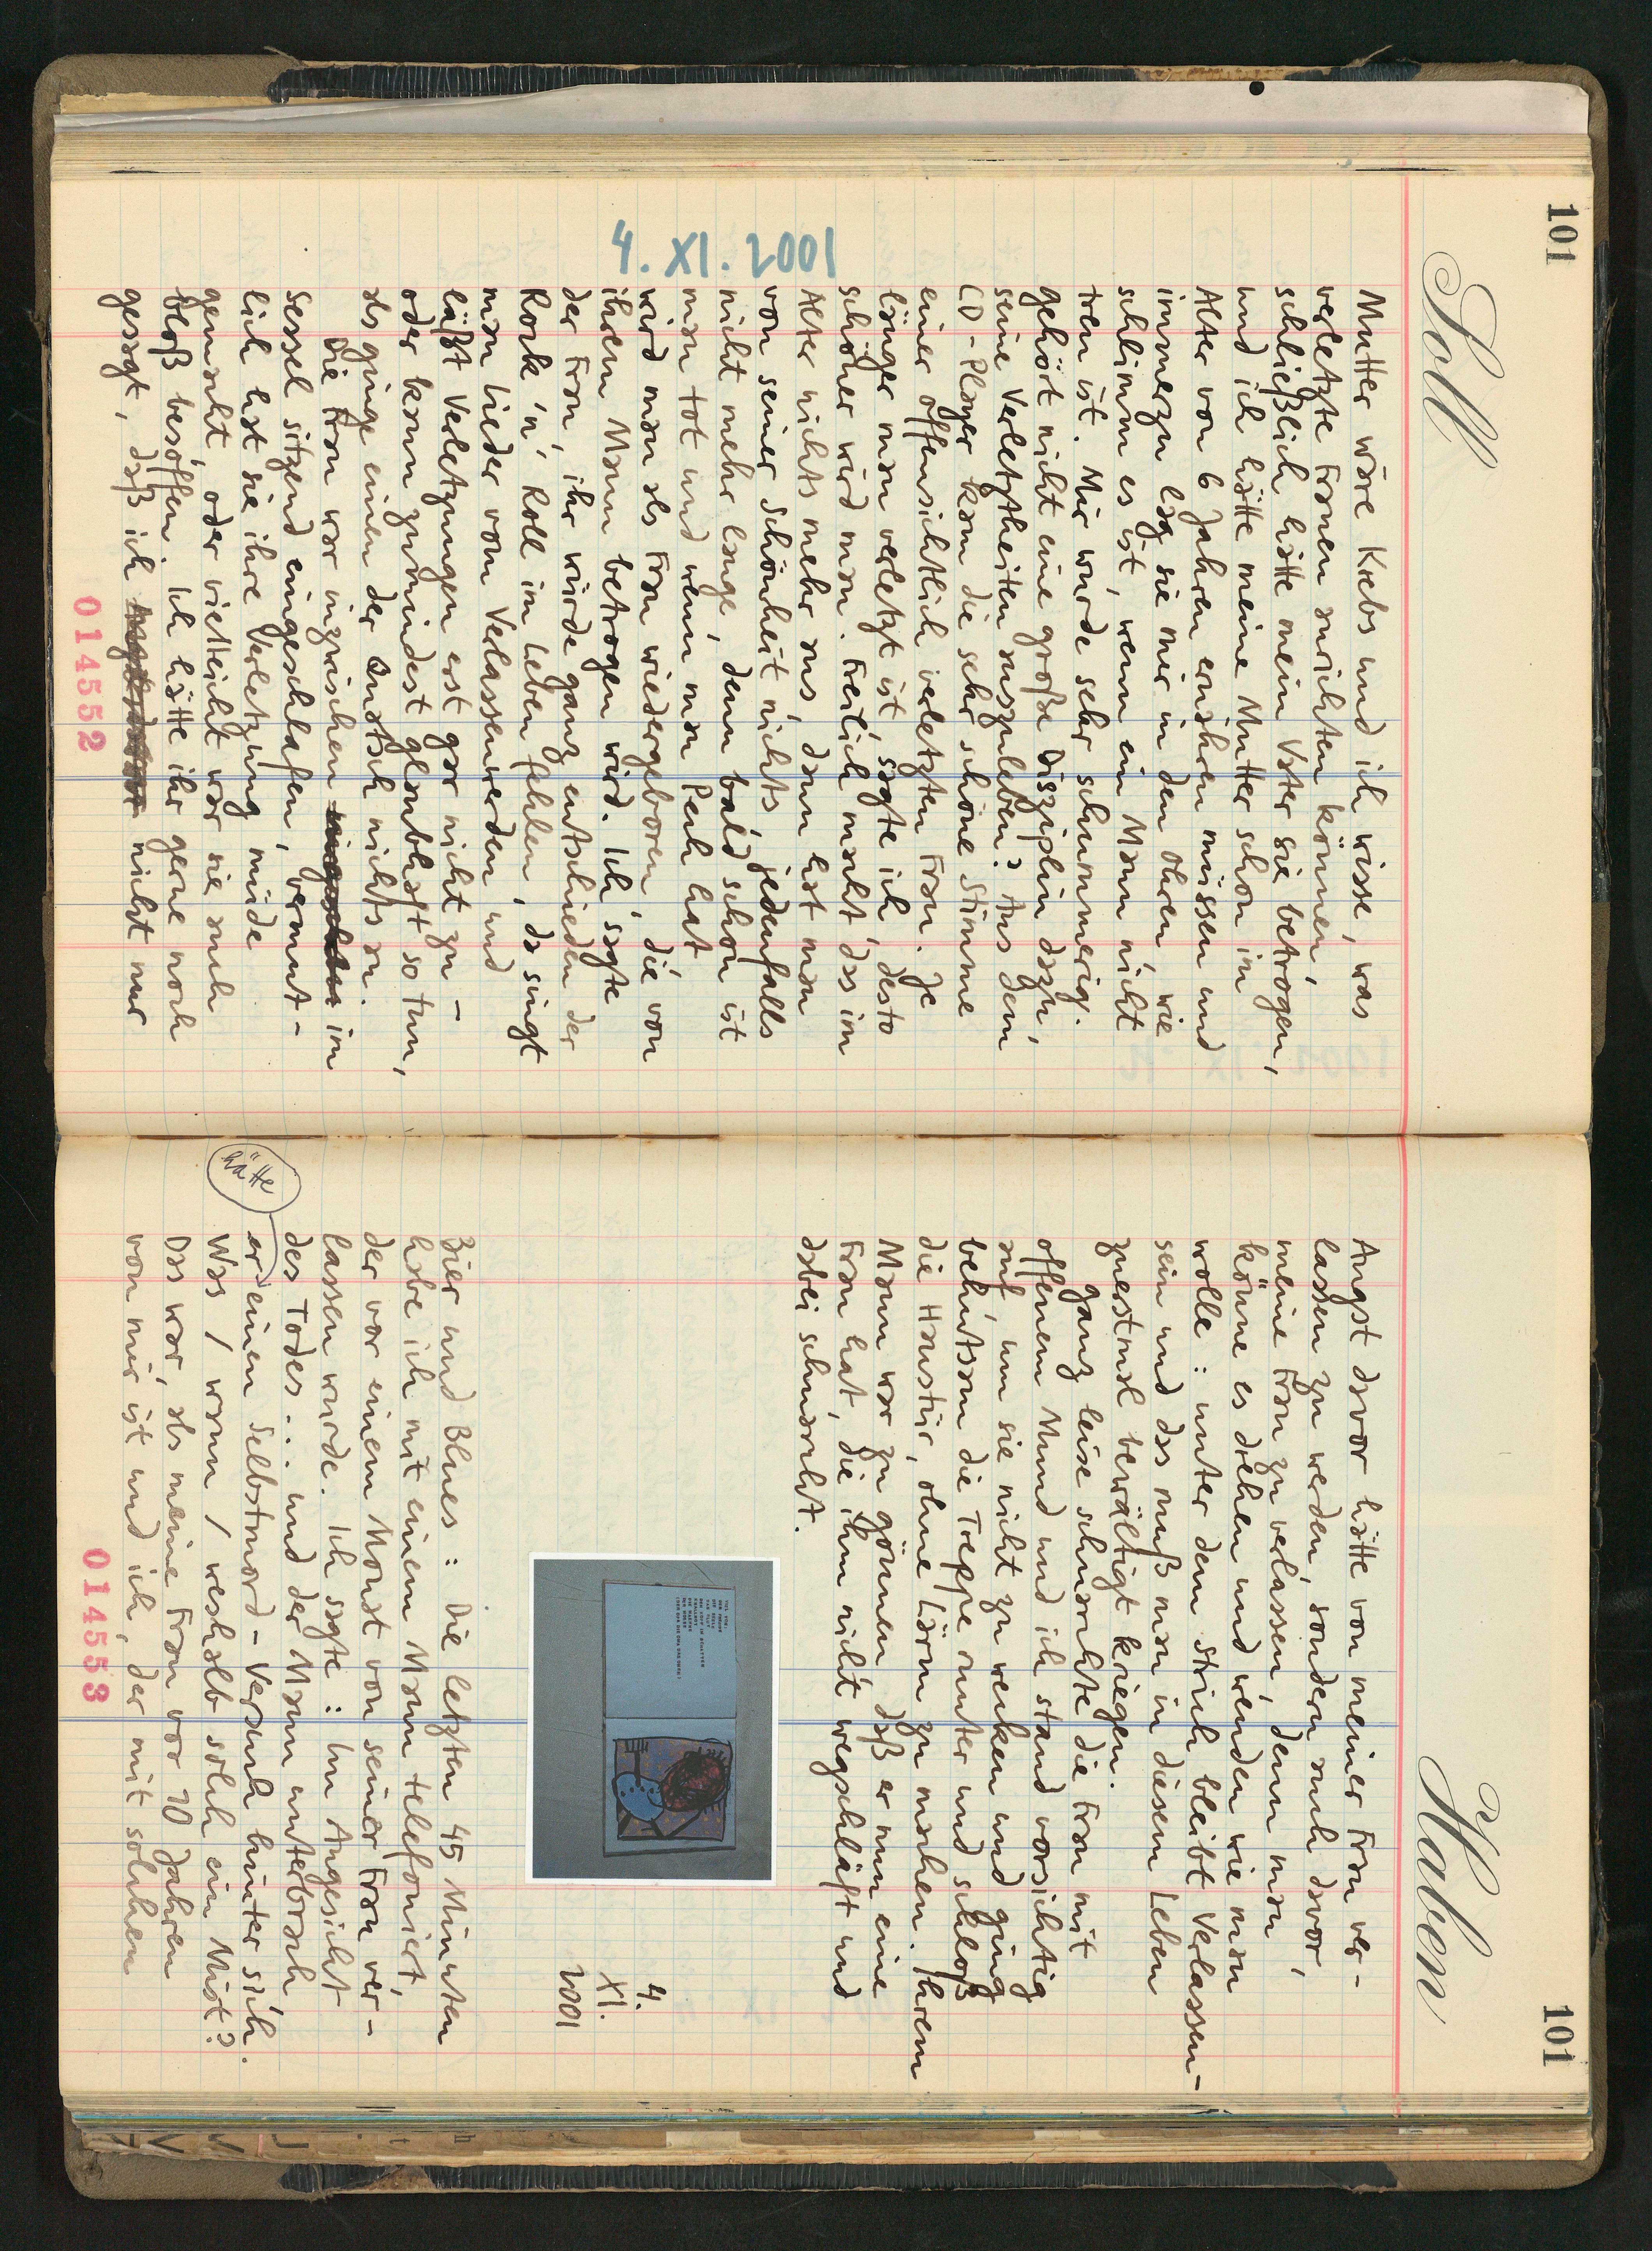 101
Soll
4. XI. 2001
Mutter wäre Krebs und ich wisse, was
verletzte Frauen anrichten können,
schließlich hätte mein Vater sie betrogen,
und ich hätte meine Mutter schon im
Alter von 6 Jahren ernähren müssen und
immerzu lag sie mir in den Ohren, wie
schlimm es ist, wenn ein Mann nicht
treu ist. Mir wurde sehr schummerig.
gehört nicht eine große Disziplin dazu,
seine Verletztheiten auszuleben? Aus dem
CD-Player kam die sehr schöne Stimme
einer offensichtlich verletzten Frau. Je
länger man verletzt ist, sagte ich, desto
schöner wird man. Freilich macht das im
Alter nichts mehr aus, dann hat man
von seiner Schönheit nichts, jedenfalls
nicht mehr lange, denn bald schon ist
man tot und wenn man Pech hat
wird man als Frau wiedergeboren, die von
ihrem Mann betrogen wird. Ich sagte
der Frau, ihr würde ganz entschieden der
Rock 'n' Roll im Leben fehlen, da singt
man Lieder vom Verlassenwerden und
läßt Verletzungen erst gar nicht zu -
oder kann zumindest glaubhaft so tun,
als ginge einen der Quatsch nichts an.
Die Frau war inzwischen im
Sessel sitzend eingeschlafen, vermut-
lich hat sie ihre Verletzung müde
gemacht, oder vielleicht war sie auch
bloß besoffen. Ich hätte ihr gerne noch
gesagt, daß ich nicht nur
014552
101
Haben
Angst davor hätte von meiner Frau ver-
lassen zu werden, sondern auch davor,
meine Frau zu verlassen, denn man
könne es drehen und wenden wie man
wolle: unter dem Strich bleibt Verlassen-
sein und das muß man in diesem Leben
zuerstmal bewältigt kriegen.
Ganz leise schnarchte die Frau mit
offenem Mund und ich stand vorsichtig
auf, um sie nicht zu wecken und ging
behutsam die Treppe runter und schloß
die Haustür, ohne Lärm zu machen. Ihrem
Mann war zu gönnen, daß er nun eine
Frau hat, die ihm nicht wegschläft und
dabei schnarcht.
4.
XI.
2001
Bier und Blues: Die letzten 45 Minuten
habe ich mit einem Mann telefoniert,
der vor einem Monat von seiner Frau ver-
lassen wurde. Ich sagte: Im Angesicht
des Todes... und der Mann unterbrach
er hätte einen Selbstmord-Versuch hinter sich.
Was / wann / weshalb solch ein Mist?
Das war, als meine Frau vor 20 Jahren
von mir ist und ich, der mit solchen
014553